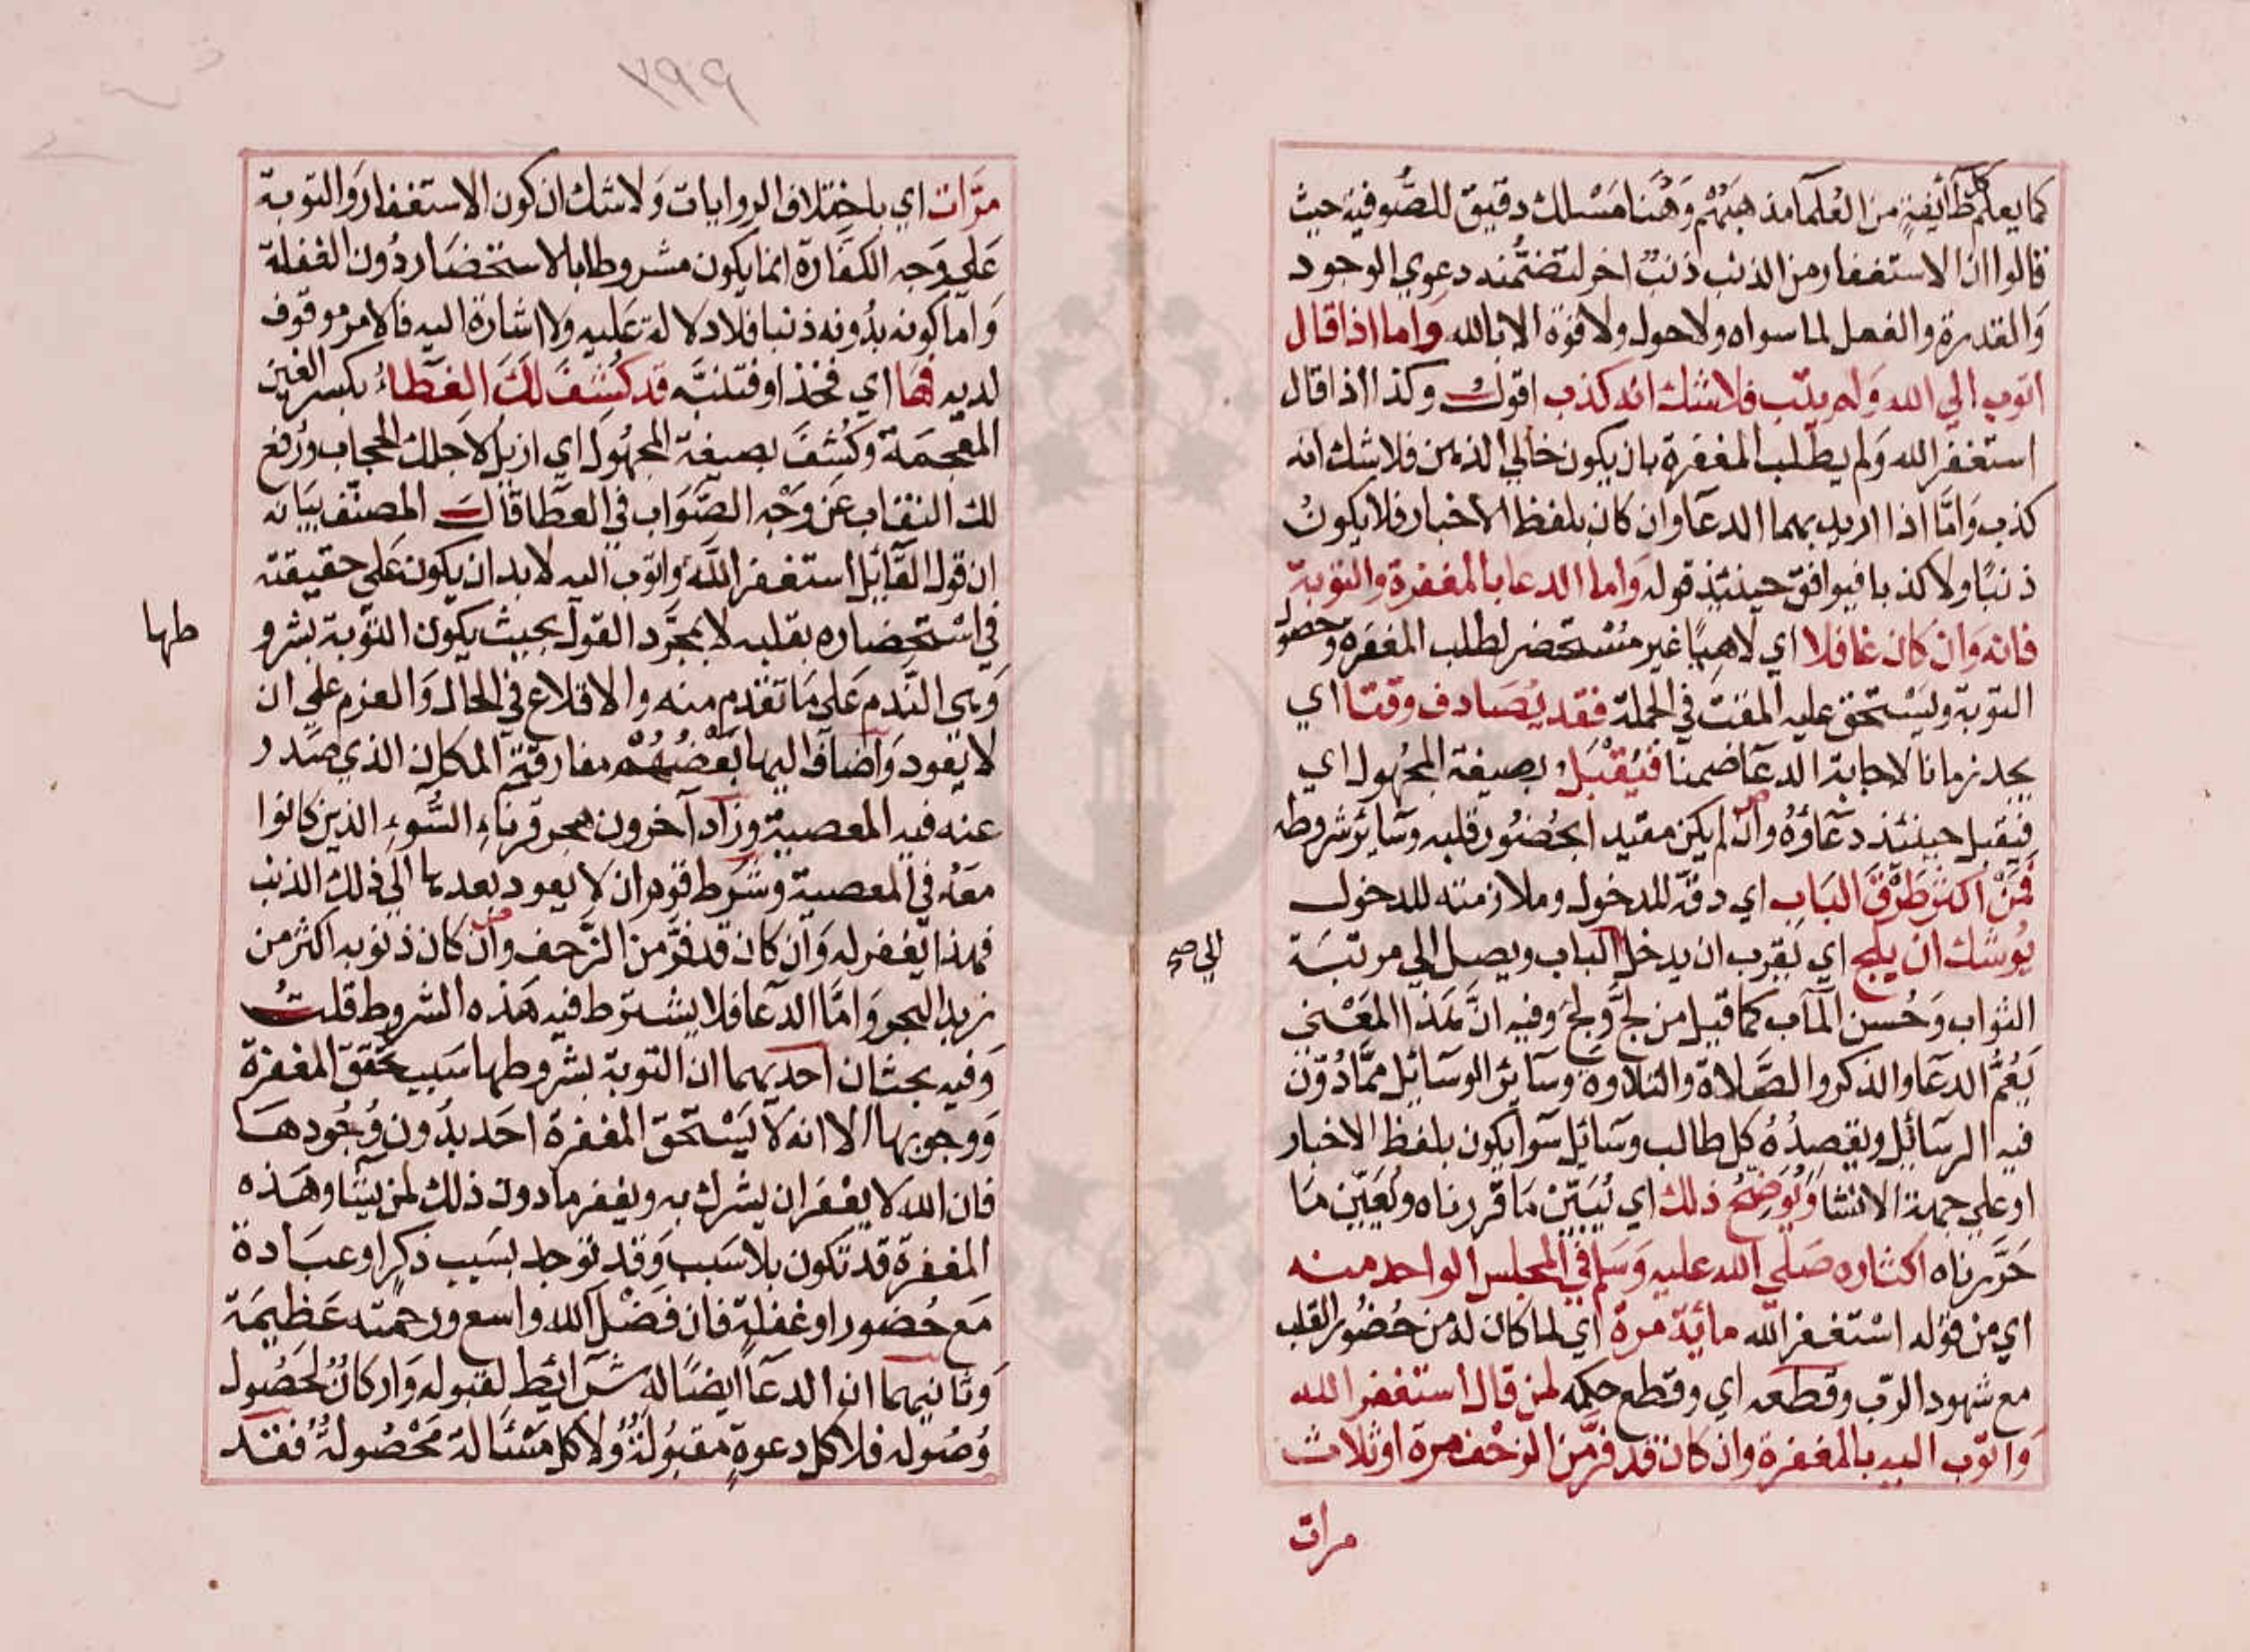 كما يعلم كل طائفة من العلماء مذهبهم وههنا مسلك دقيق للصوفية حيث
قالوا ان الاستغفار من الذنب ذنب اخر لتضمنه دعوي الوجود
والقدرة والفعل لما سواه ولا حول ولا قوة الا بالله واما اذا قال
اتوب الي الله ولم يتب فلا شك انه كذب اقول وكذا اذا قال
استغفر الله ولم يطلب المغفرة بان يكون خالي الذهن فلا شك انه
كذب واما اذا اريد بهما الدعا وان كان بلفظ الاخبار فلا يكون
ذنبا ولا كذبا فيوافق حينئذ قوله واما الدعا بالمغفرة والتوبة
فانه وان كان غافلا اي لاهيا غير مستحضر لطلب المغفرة وحصول
التوبة ويستحق عليه المقت في الجملة فقد يصادف وقتا اي
يجد زمانا لاجابة الدعا ضمنا فيقبل بصيغة المجهول اي
فيقبل حينئذ دعاؤه وان لم يكن مقيدا بحضور قلبه وسائر شروطه
فمن اكثر طرق الباب اي دقه للدخول وملازمته للدخول
يوشك ان يلج اي يقرب ان يدخل الباب ويصل الي مرتبة
الي صح
الثواب وحسن المآب كما قيل من لج ولج وفيه ان هذا المعني
يعم الدعا والذكر والصلاة والتلاوة وسائر الوسائل مما دون
فيه الرسائل ويقصده كل طالب وسائل سوا يكون بلفظ الاخبار
او علي جهة الانشا ويوضح ذلك اي يبين ما قررناه ويعين ما
حررناه اكثاره صلي الله عليه وسلم في المجلس الواحد منه
اي من قوله استغفر الله مائة مرة اي لما كان له من حضور القلب
مع شهود الرب وقطعه اي وقطع حكمه لمن قال استغفر الله
واتوب اليه بالمغفرة وان كان قد فر من الزحف مرة او ثلاث
مرات
٧٩٩
مرات اي باختلاف الروايات ولا شك ان كون الاستغفار والتوبة
علي وجه الكفارة انما يكون مشروطا بالاستحضار دون الغفلة
واما كونه بدونه ذنبا فلا دلالة عليه ولا اشارة اليه فالامر موقوف
لديه فها اي فخذ او فتنبه قد كشف لك الغطاء بكسر الغين
المعجمة وكشف بصيغة المجهول اي ازيل لاجلك الحجاب ورفع
لك النقاب عن وجه الصواب في العطا قال المصنف بيانه
ان قول القائل استغفر الله واتوب اليه لا بد ان يكون علي حقيقته
في استحضاره بقلبه لا بمجرد القول بحيث يكون التوبة بشرو
طها
وهي الندم علي ما تقدم منه والاقلاع في الحال والعزم علي ان
لا يعود واضاف اليها بعضهم مفارقة المكان الذي صدر
عنه فيه المعصية وزاد آخرون هجر قرناء السوء الذين كانوا
معه في المعصية وشرط قوم ان لا يعود بعدها الي ذلك الذنب
فهذا يغفر له وان كان قد فر من الزحف وان كان ذنوبه اكثر من
زبد البحر واما الدعا فلا يشترط فيه هذه الشروط قلت
وفيه بحثان احديهما ان التوبة بشروطها سبب تحقق المغفرة
ووجوبها الا انه لا يستحق المغفرة احد بدون وجودها
فان الله لا يغفر ان يشرك به ويغفر ما دون ذلك لمن يشا وهذه
المغفرة قد تكون بلا سبب وقد توجد بسبب ذكر او عبادة
مع حضور او غفلة فان فضل الله واسع ورحمته عظيمة
وثانيهما ان الدعا ايضا له شرائط لقبوله واركان لحصول
وصوله فلا كل دعوة مقبولة ولا كل مسئالة محصولة فقد